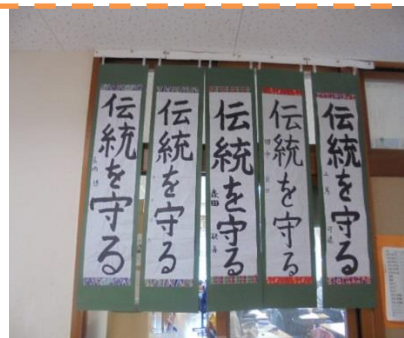 伝統を守る
伝統を守る
伝統を守る
伝統を守る
伝統を守る